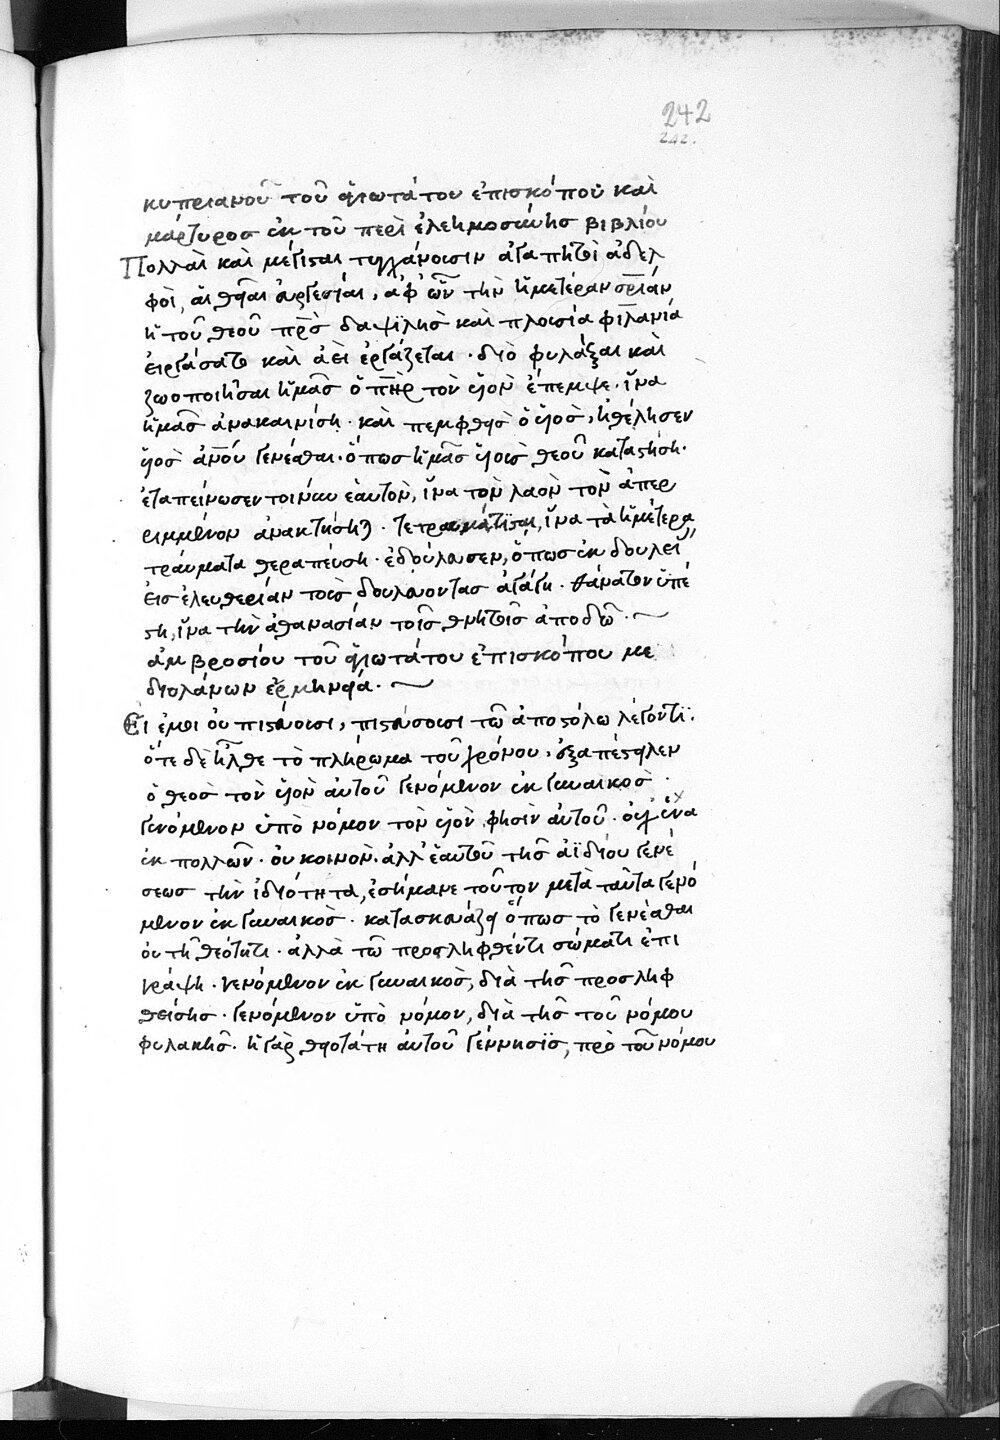 242
242.
κυπριανοῦ τοῦ ἁγιωτάτου ἐπισκόπου καὶ
μάρτυρος ἐκ τοῦ περὶ ἐλεημοσύνησ βιβλίου
Πολλαὶ καὶ μέγισται τυγχάνουσιν ἀγαπητοὶ ἀδελ
φοὶ, αἱ θεῖαι εὐεργεσίαι, ἀφ ὧν τὴν ἡμετέραν σρίαν
ἡ τοῦ θεοῦ πρσ δαψϊλὴσ καὶ πλουσία φιλανία
εἰργάσατο καὶ ἀεὶ ἐργάζεται · διὸ φυλάξαι καὶ
ζωοποιῆσαι ἡμᾶσ ὁ πηρ τὸν υἱὸν ἔπεμψε · ἵνα
ἡμᾶσ ἀνακαινίση · καὶ πεμφθεὶσ ὁ υἱὸσ, ἠθέλησεν
υἱὸσ ἀνου γενέσθαι · ὅπωσ ἡμᾶσ υἱοὺσ θεοῦ καταστήση ·
ἐταπείνωσεν τοίνυν ἑαυτὸν, ἵνα τὸν λαὸν τὸν ἀπερ
ριμμένον ἀνακτήσηται · τετραυμάτισται, ἵνα τὰ ἡμέτερα
τραύματα θεραπεύση · ἐδούλευσεν, ὅπωσ ἐκ δουλεί
εἰσ ἐλευθερίαν τοὺσ δουλεύοντασ ἀγάγη · θάνατον ὑπέ
στη, ἵνα τὴν ἀθανασίαν τοῖσ θνητοῖσ ἀποδῶ ·
ἀμβροσίου τοῦ ἁγιωτάτου ἐπισκόπου με
διολάνων ἑρμηνεία ·
Εἰ ἐμοὶ οὐ πιστεύουσι, πιστεύσουσι τῶ ἀποστόλω λέγοντϊ.
ὅτε δὲ ἦλθε τὸ πλήρωμα τοῦ χρόνου, ἐξαπέστειλεν
ὁ θεὸσ τὸν υἱὸν αὐτοῦ γενόμενον ἐκ γυναικὸσ
γενόμενον ὑπὸ νόμον τὸν υἱὸν φησὶν αὐτοῦ · οὐχ ἕνα
ἐκ πολλῶν · οὐ κοινὸν · ἀλλ ἑαυτοῦ τῆσ ἀϊδίου γενέ
σεωσ τὴν ἰδιότητα, ἐσήμανε τοῦτον μετὰ ταῦτα γενό
μενον ἐκ γυναικὸσ · κατασκευάζει ὅπωσ τὸ γενέσθαι
οὐ τῆ θεότητι · ἀλλὰ τῶ προσληφθέντι σώματι ἐπι
γράψη · γενόμενον ἐκ γυναικὸσ, διὰ τῆσ προσληφ
θείσησ · γενόμενον ὑπὸ νόμον, διὰ τῆσ τοῦ νόμου
φυλακῆσ · ἡ γὰρ θειοτάτη αὐτοῦ γέννησϊσ, πρὸ τοῦ νόμου